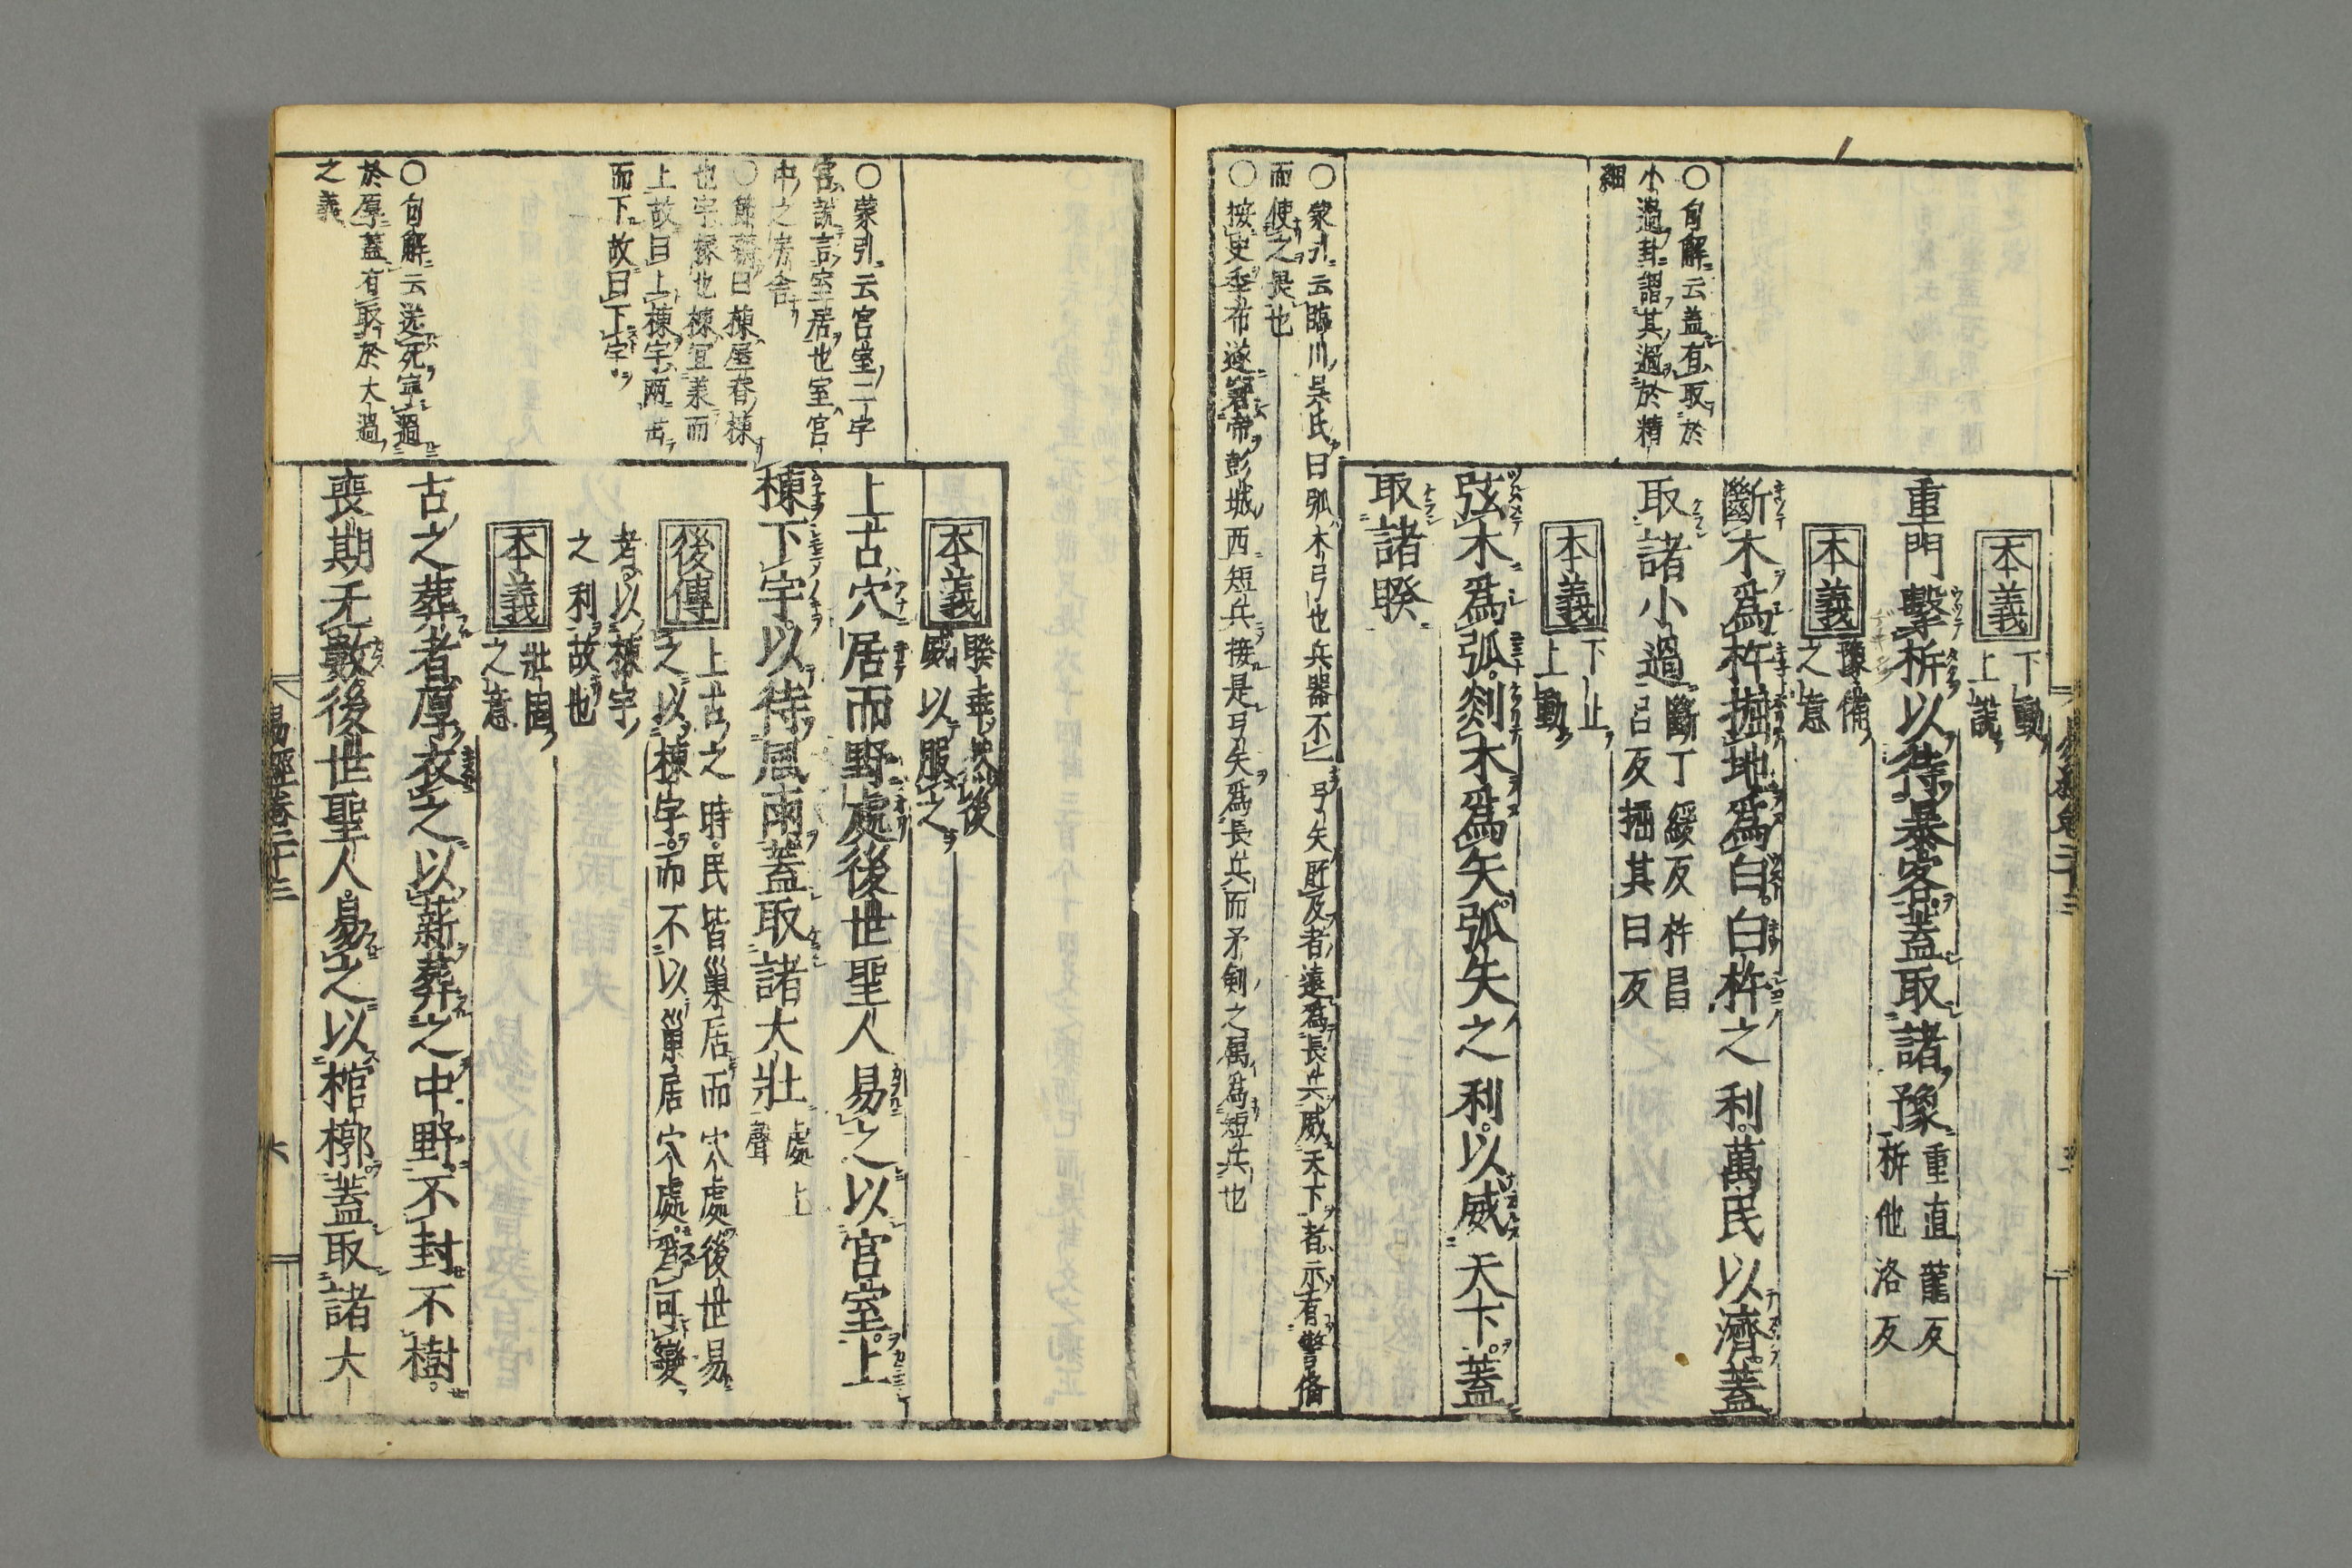 本義
下動
上説
重門擊柝以待暴客蓋取諸豫
重直龍反
柝他洛反
本義
豫備
之意
斷木爲杵掘地爲臼臼杵之利萬民以濟蓋
取諸小過
斷丁緩反杵昌
呂反掘其日反
本義
下止
上動
弦木爲弧剡木爲矢弧矢之利以威天下蓋
取諸睽
○句解云蓋有取於
小過卦謂其過於精
細
○蒙引云臨川吳氏曰弧木弓也兵器不一弓矢所及者遠爲長兵威天下者示有警備
而使之畏也
○按史季布遂窘帝彭城西短兵接是弓矢爲長兵而矛剣之属爲短兵也
本義
睽乖然後
威以服之
上古穴居而野處後世聖人易之以宮室上
棟下宇以待風雨蓋取諸大壯
處上
聲
後傳
上古之時民皆巢居而穴處後世易
之以棟宇而不以巢居穴處爲可變
者以棟宇
之利故也
本義
壯固
之意
古之葬者厚衣之以薪葬之中野不封不樹
喪期无數後世聖人易之以棺槨蓋取諸大
○蒙引云宮室二字
宮說言室居也室宮
中之房舍
曰棟屋脊棟
也宇椽也棟宜羕而
上故曰上棟宇兩
而下故曰下宇
○句解云送死寧過
於厚蓋有取於大過
之義
易經卷二十三
六